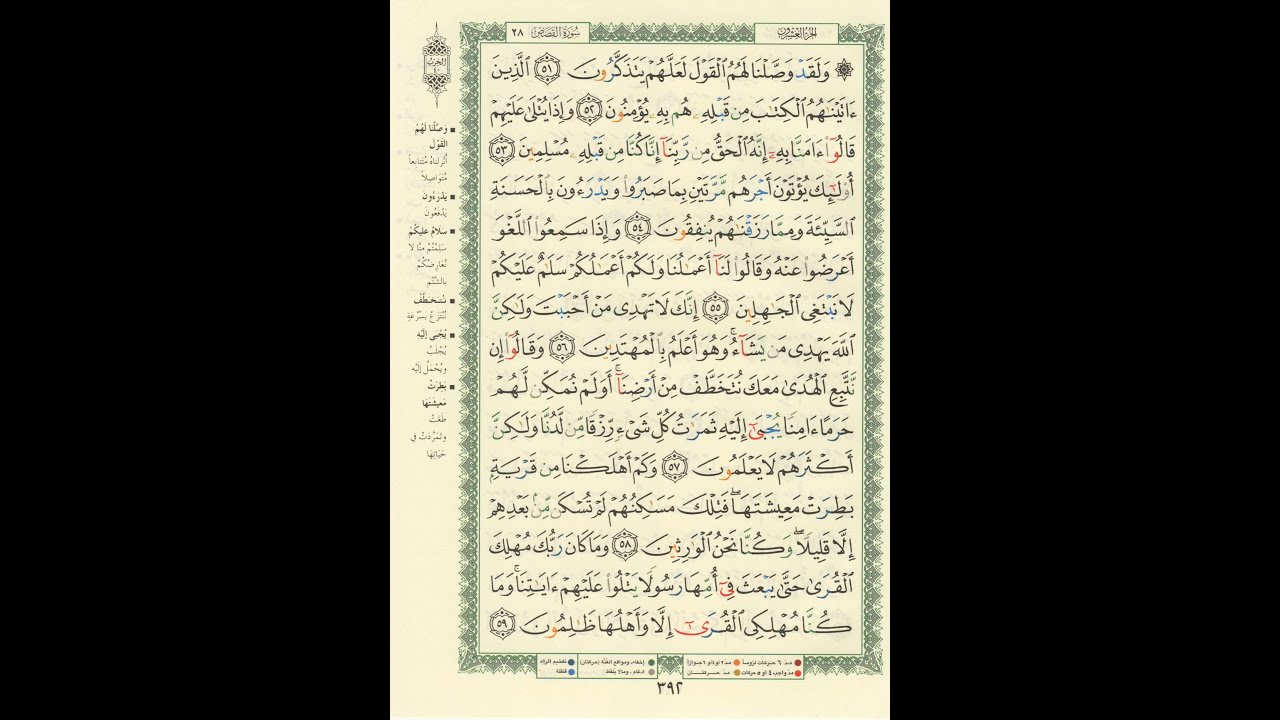 الجزء العشرون
سورة القصص ٢٨
۞ وَلَقَدْ وَصَّلْنَا لَهُمُ ٱلْقَوْلَ لَعَلَّهُمْ يَتَذَكَّرُونَ ٥١ ٱلَّذِينَ
ءَاتَيْنَٰهُمُ ٱلْكِتَٰبَ مِن قَبْلِهِۦ هُم بِهِۦ يُؤْمِنُونَ ٥٢ وَإِذَا يُتْلَىٰ عَلَيْهِمْ
قَالُوٓا۟ ءَامَنَّا بِهِۦٓ إِنَّهُ ٱلْحَقُّ مِن رَّبِّنَآ إِنَّا كُنَّا مِن قَبْلِهِۦ مُسْلِمِينَ ٥٣
أُو۟لَٰٓئِكَ يُؤْتَوْنَ أَجْرَهُم مَّرَّتَيْنِ بِمَا صَبَرُوا۟ وَيَدْرَءُونَ بِٱلْحَسَنَةِ
ٱلسَّيِّئَةَ وَمِمَّا رَزَقْنَٰهُمْ يُنفِقُونَ ٥٤ وَإِذَا سَمِعُوا۟ ٱللَّغْوَ
أَعْرَضُوا۟ عَنْهُ وَقَالُوا۟ لَنَآ أَعْمَٰلُنَا وَلَكُمْ أَعْمَٰلُكُمْ سَلَٰمٌ عَلَيْكُمْ
لَا نَبْتَغِى ٱلْجَٰهِلِينَ ٥٥ إِنَّكَ لَا تَهْدِى مَنْ أَحْبَبْتَ وَلَٰكِنَّ
ٱللَّهَ يَهْدِى مَن يَشَآءُ ۚ وَهُوَ أَعْلَمُ بِٱلْمُهْتَدِينَ ٥٦ وَقَالُوٓا۟ إِن
نَّتَّبِعِ ٱلْهُدَىٰ مَعَكَ نُتَخَطَّفْ مِنْ أَرْضِنَآ ۚ أَوَلَمْ نُمَكِّن لَّهُمْ
حَرَمًا ءَامِنًا يُجْبَىٰٓ إِلَيْهِ ثَمَرَٰتُ كُلِّ شَىْءٍ رِّزْقًا مِّن لَّدُنَّا وَلَٰكِنَّ
أَكْثَرَهُمْ لَا يَعْلَمُونَ ٥٧ وَكَمْ أَهْلَكْنَا مِن قَرْيَةٍۭ
بَطِرَتْ مَعِيشَتَهَا ۖ فَتِلْكَ مَسَٰكِنُهُمْ لَمْ تُسْكَن مِّنۢ بَعْدِهِمْ
إِلَّا قَلِيلًا ۖ وَكُنَّا نَحْنُ ٱلْوَٰرِثِينَ ٥٨ وَمَا كَانَ رَبُّكَ مُهْلِكَ
ٱلْقُرَىٰ حَتَّىٰ يَبْعَثَ فِىٓ أُمِّهَا رَسُولًا يَتْلُوا۟ عَلَيْهِمْ ءَايَٰتِنَا ۚ وَمَا
كُنَّا مُهْلِكِى ٱلْقُرَىٰٓ إِلَّا وَأَهْلُهَا ظَٰلِمُونَ ٥٩
الحزب
٤٠
وَصَّلْنَا لَهُمُ
القَوْلَ
أنْزلناهُ مُتتابعاً
مُتَواصِلاً
يَدْرَءُونَ
يَدْفَعُونَ
سَلامٌ عليْكُمْ
سَلِمْتُمْ منّا لا
نُعارِضُكُمْ
بالشَّتْم
نُتَخَطَّفْ
نُنْتَزَعْ بسُرْعَةٍ
يُجْبَى إليْهِ
يُجْلَبُ
ويُحْمَلُ إليْه
بَطِرَتْ
مَعيشَتَهَا
طَغَتْ
وتَمَرَّدَتْ في
حَيَاتِهَا
مدّ ٦ حركات لزوماً
مدّ ٢ او ٤ او ٦ جوازاً
إخفاء، ومواقع الغُنَّة (حركتان)
تفخيم الراء
مدّ واجب ٤ او ٥ حركات
مدّ حركتان
ادغام، ومالا يُلفظ
قلقلة
٣٩٢